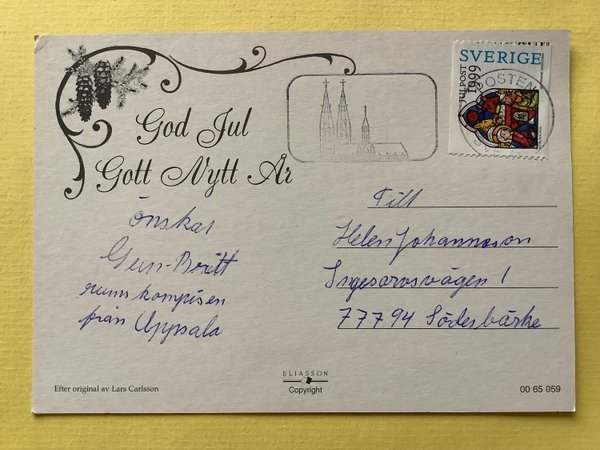 God Jul
Gott Nytt År
önskar
Gun-Britt
rumskompisen
från Uppsala
SVERIGE
JULPOST
1999
POSTEN
Till
Helen Johannsson
Ingesarvsvägen 1
77794 Söderbärke
Efter original av Lars Carlsson
ELIASSON
Copyright
00 65 059